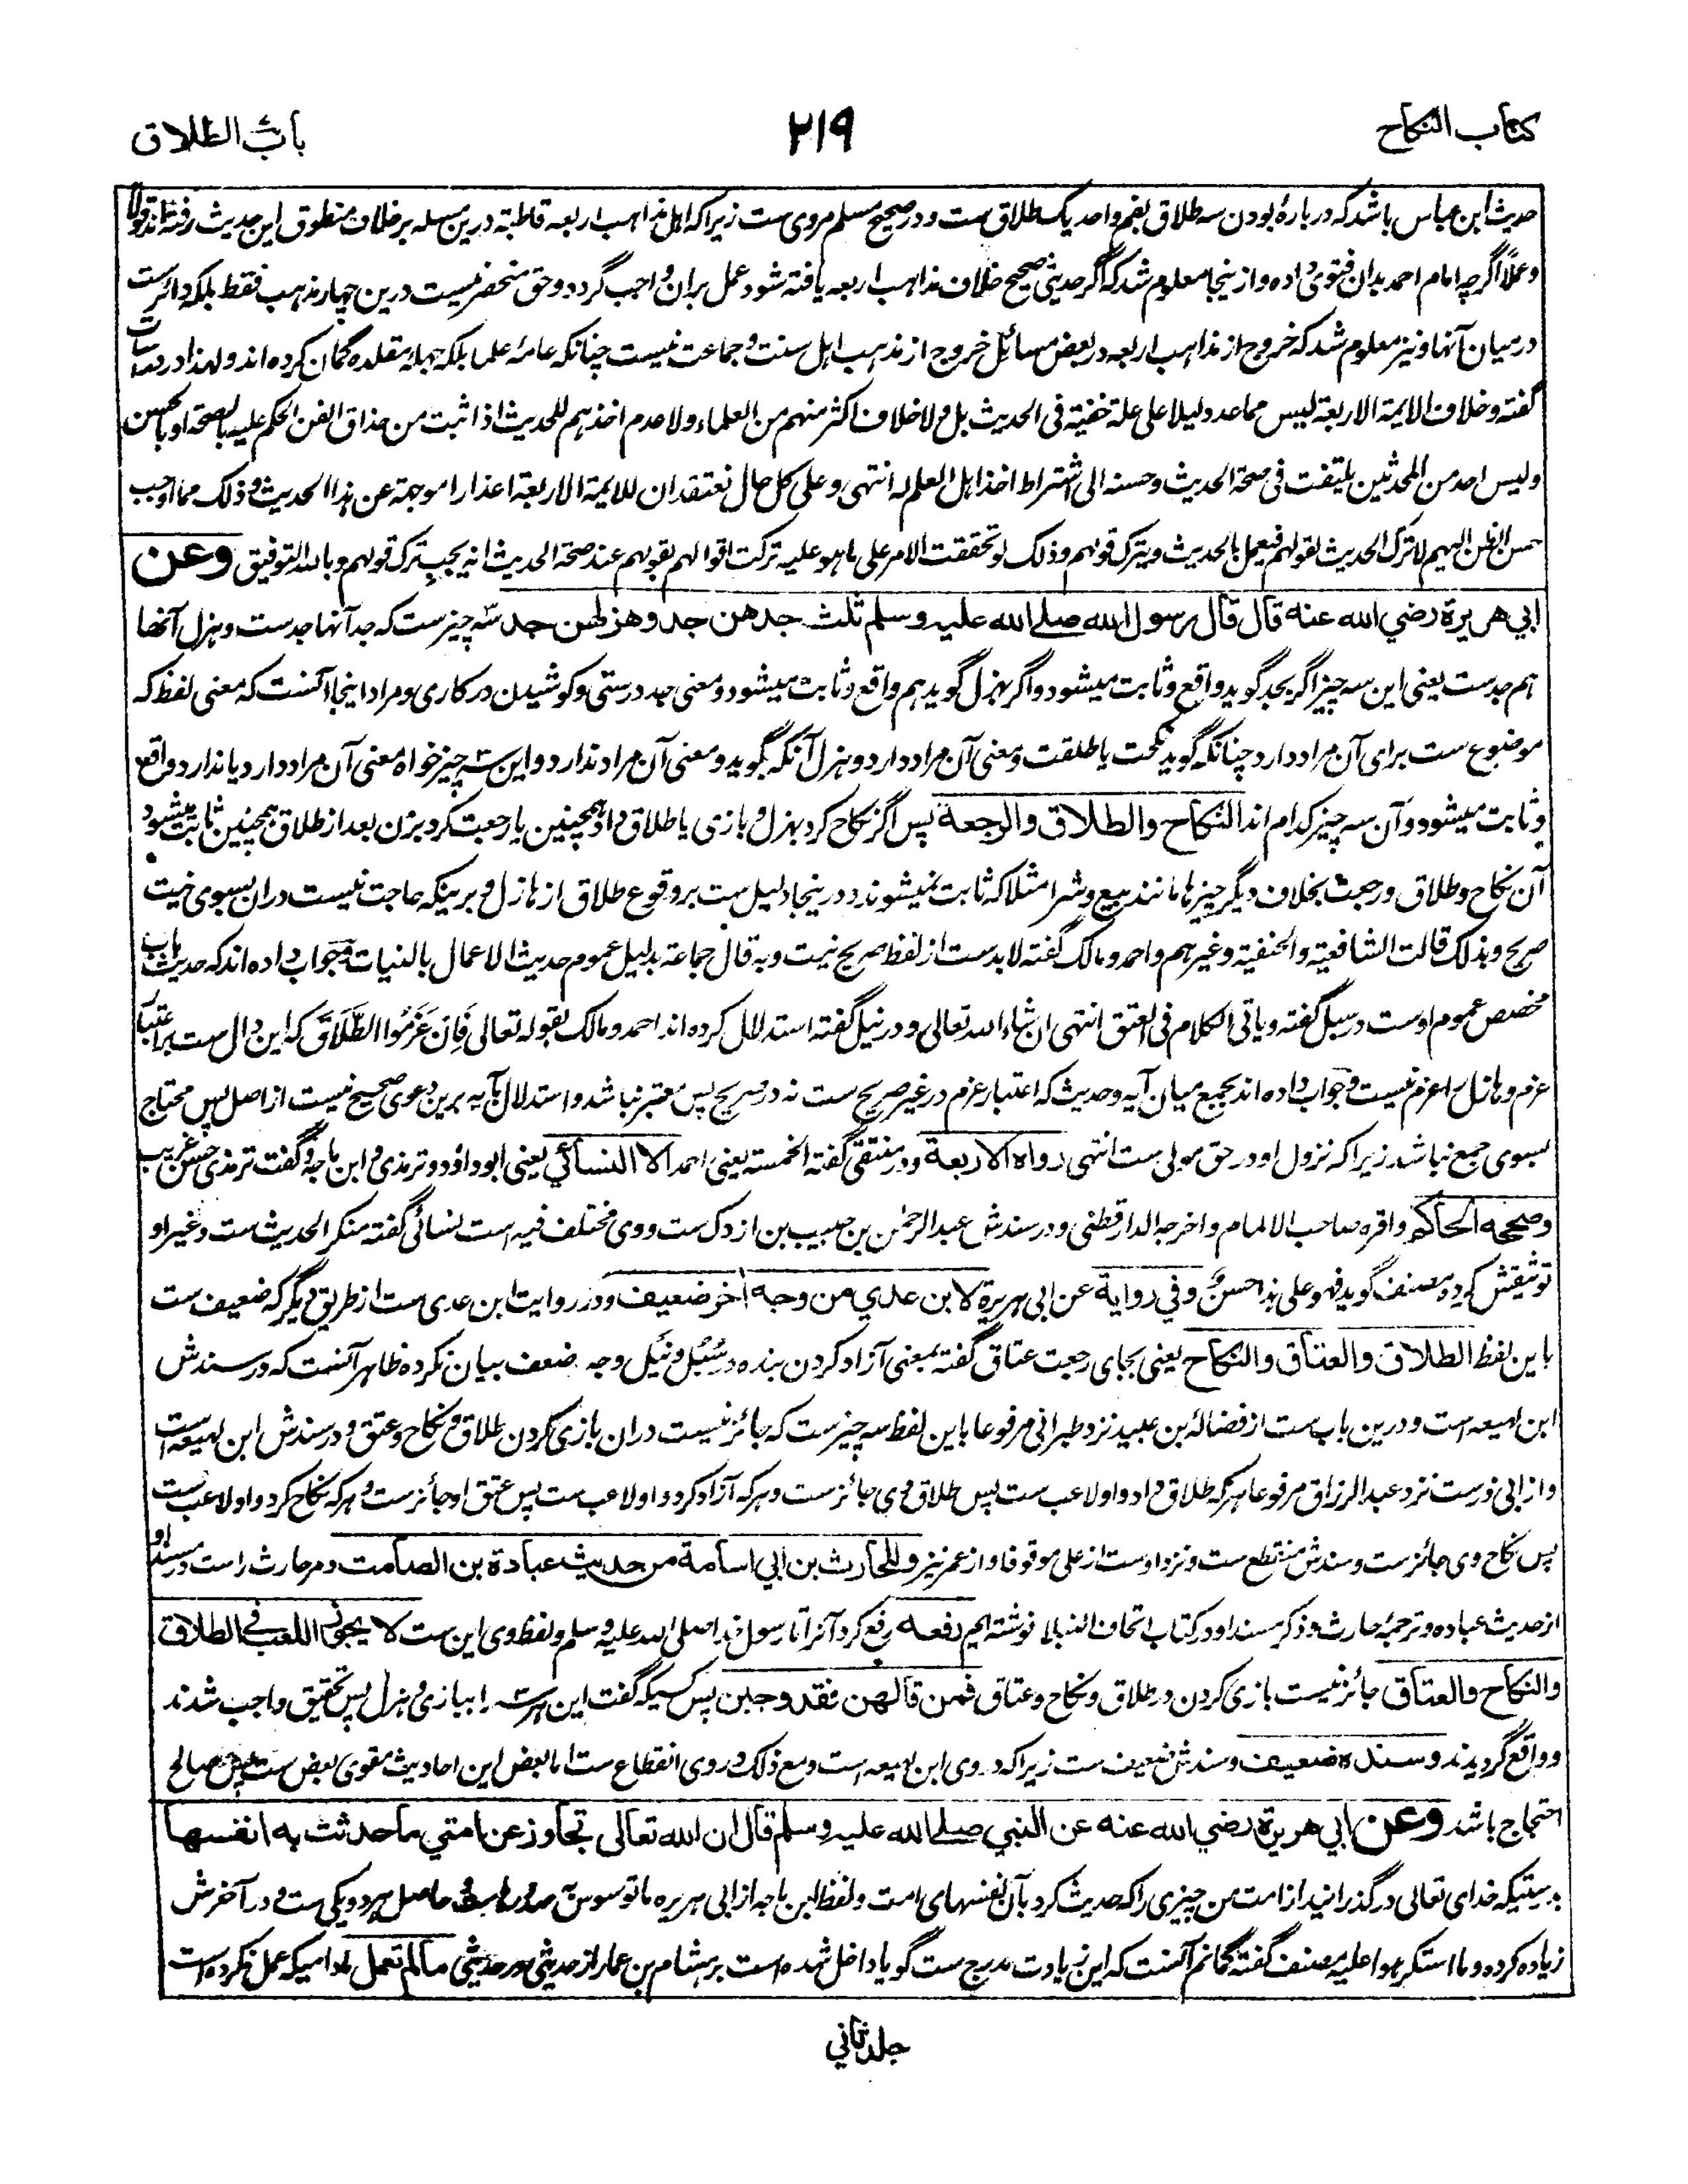 كتاب النكاح
٢١٩
باب الطلاق
حدیث ابن عباس باشد که دربارهٔ بودن سه طلاق بفم واحد یک طلاق ست ودر صحیح مسلم مروی ست زیرا که اهل مذاهب اربعه قاطبة درین مسله بر خلاف منطوق این حدیث رفته اند قولا
وعملا اگرچه امام احمد بدان فتوی داده واز ینجا معلوم شد که اگر حدیثی صحیح خلاف مذاهب اربعه یافته شود عمل بران واجب گردد وحق منحصر نیست درین چهار مذهب فقط بلکه دائرست
درمیان آنها ونیز معلوم شد که خروج از مذاهب اربعه در بعض مسائل خروج از مذهب اهل سنت وجماعت نیست چنانکه عامهٔ علما بلکه جهلهٔ مقلده گمان کرده اند ولهذا در دراسات
گفته وخلاف الایمة الاربعة لیس مما عد دلیلا علی علة خفیة فی الحدیث بل ولا خلاف اکثر منهم من العلماء ولا عدم اخذهم للحدیث اذا ثبت من حذاق الفن الحکم علیه بالصحة او بالحسن
ولیس احد من المحدثین یلتفت فی صحة الحدیث وحسنه الی اشتراط اخذ اهل العلم له انتهی وعلی کل حال نعتقد ان للایمة الاربعة اعذارا موجهة عن هذا الحدیث وذلک مما اوجب
حسن الظن الیهم لا ترک الحدیث لقولهم فیعمل بالحدیث ویترک قولهم وذلک لو تحققت الامر علی ما هو علیه ترکت اقوالهم بقولهم عند صحة الحدیث انه یجب ترک قولهم وبالله التوفیق وعن
ابي هريرة رضي الله عنه قال قال رسول الله صلى الله عليه وسلم ثلث جدهن جد وهزلهن جد سه چیزست که جد آنها جدست وهزل آنها
هم جدست یعنی این سه چیز اگر بجد گوید واقع وثابت میشود واگر بهزل گوید هم واقع وثابت میشود ومعنی جد درستی وکوشیدن در کاری ومراد اینجا آنست که معنی لفظ که
موضوع ست برای آن مراد دارد چنانکه گوید نکحت یا طلقت ومعنی آن مراد دارد وهزل آنکه بگوید ومعنی آن مراد ندارد واین سه چیز خواه معنی آن مراد دارد یا ندارد واقع
وثابت میشود وآن سه چیز کدام اند النكاح والطلاق والرجعة پس اگر نکاح کرد بهزل وبازی یا طلاق داد همچنین یا رجعت کرد بزن بعد از طلاق همچنین ثابت میشود
آن نکاح وطلاق ورجعت بخلاف دیگر چیزها مانند بیع وشرا مثلا که ثابت نمیشوند ودرینجا دلیل ست بر وقوع طلاق از هازل وبرینکه حاجت نیست دران بسوی نیت
صریح وبذلک قالت الشافعیة والحنفیة وغیرهم واحمد ومالک گفته لابدست از لفظ صریح نیت وبه قال جماعة بدلیل عموم حدیث الاعمال بالنیات وجواب داده اند که حدیث باب
مخصص عموم اوست در سبل گفته ویاتی الکلام فی العتق انتهی ان شاء الله تعالی ودر نیل گفته استدلال کرده اند احمد ومالک بقوله تعالی فَاِنْ عَزَمُوا الطَّلَاقَ که این دال ست بر اعتبار
عزم وهازل را عزم نیست وجواب داده اند بجمع میان آیه وحدیث که اعتبار عزم در غیر صریح ست نه در صریح پس معتبر نباشد واستدلال بآیه برین دعوی صحیح نیست از اصل پس محتاج
بسوی جمع نباشد زیرا که نزول او در حق مولی ست انتهی رواه الاربعة ودر منتقی گفته الخمسة یعنی احمد الا النسائي یعنی ابوداؤد وترمذی وابن ماجه وگفت ترمذی حسن غریب
وصححه الحاكم واقره صاحب الالمام واخرجه الدارقطنی ودر سندش عبدالرحمن بن حبیب بن ازدک ست ووی مختلف فیه است نسائی گفته منکر الحدیث ست وغیر او
توثیقش کرده مصنف گوید فهو علی هذا حسن وفي رواية عن ابی هریرة لابن عدي من وجه آخر ضعيف ودر روایت ابن عدی ست از طریق دیگر که ضعیف ست
باین لفظ الطلاق والعتاق والنكاح یعنی بجای رجعت عتاق گفته بمعنی آزاد کردن بنده در سبل ونیل وجه ضعف بیان نکرده ظاهر آنست که در سندش
ابن لهیعه است ودرین باب ست از فضالة بن عبید نزد طبرانی مرفوعا باین لفظ سه چیزست که جائز نیست دران بازی کردن طلاق ونکاح وعتق ودر سندش ابن لهیعه است
واز ابی ذرست نزد عبدالرزاق مرفوعا هرکه طلاق داد واو لاعب ست پس طلاق وی جائزست وهرکه آزاد کرد واو لاعب ست پس عتق او جائزست وهرکه نکاح کرد واو لاعب ست
پس نکاح وی جائزست وسندش منقطع ست ونزد اوست از علی موقوفا واز عمر نیز وللحارث بن ابي اسامة من حديث عبادة بن الصامت ومر حارث راست در مسند او
از حدیث عباده وترجمهٔ حارث وذکر مسند او در کتاب اتحاف النبلا نوشته ایم رفعه رفع کرد آنرا تا رسول خدا صلی الله علیه وسلم ولفظ وی این ست لا يجوز اللعب في الطلاق
والنكاح والعتاق جائز نیست بازی کردن در طلاق ونکاح وعتاق فمن قالهن فقد وجبن پس کسیکه گفت این هر سه را ببازی وهزل پس تحقیق واجب شدند
وواقع گردیدند وسنده ضعيف وسندش ضعیف ست زیرا که در وی ابن لهیعه است ومع ذلک در وی انقطاع ست اما بعض این احادیث مقوی بعض ست پس صالح
احتجاج باشد وعن ابي هريرة رضي الله عنه عن النبي صلى الله عليه وسلم قال ان الله تعالى تجاوز عن امتي ما حدثت به انفسها
بدرستیکه خدای تعالی درگذرانید از امت من چیزی را که حدیث کرد بآن نفسهای امت ولفظ ابن ماجه از ابی هریره ما توسوس به صدورها ست وحاصل هر دو یکی ست ودر آخرش
زیاده کرده وما استکرهوا علیه مصنف گفته گمانم آنست که این زیادت مدرج ست گویا داخل شده است بر هشام بن عمار از حدیثی در حدیثی مالم تعمل مادامیکه عمل نکرده است
جلد ثاني